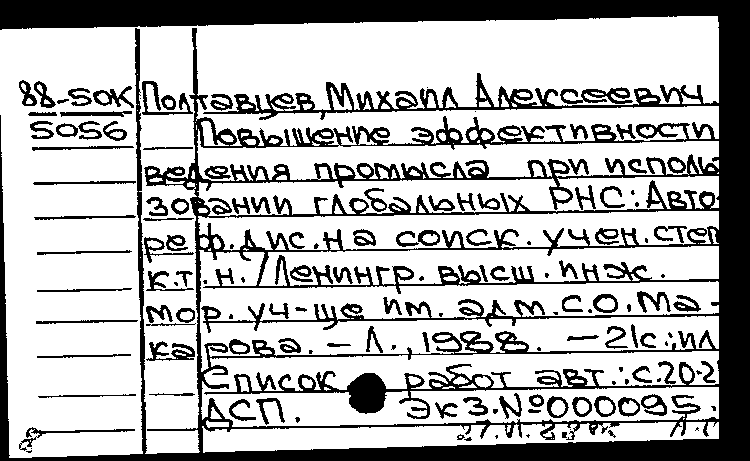 88-50К Полтавцев, Михаил Алексеевич.
5056 Повышение эффективности
ведения промысла при исполь
зовании глобальных РНС: Авто-
реф. дис. на соиск. учен. степ
к.т.н. / Ленингр. высш. инж.
мор. уч-ще им. адм. С.О. Ма-
карова. - Л., 1988. - 21с.: ил
Список работ авт.: с. 20-2
ДСП. Экз. №000095.
27.VI.88